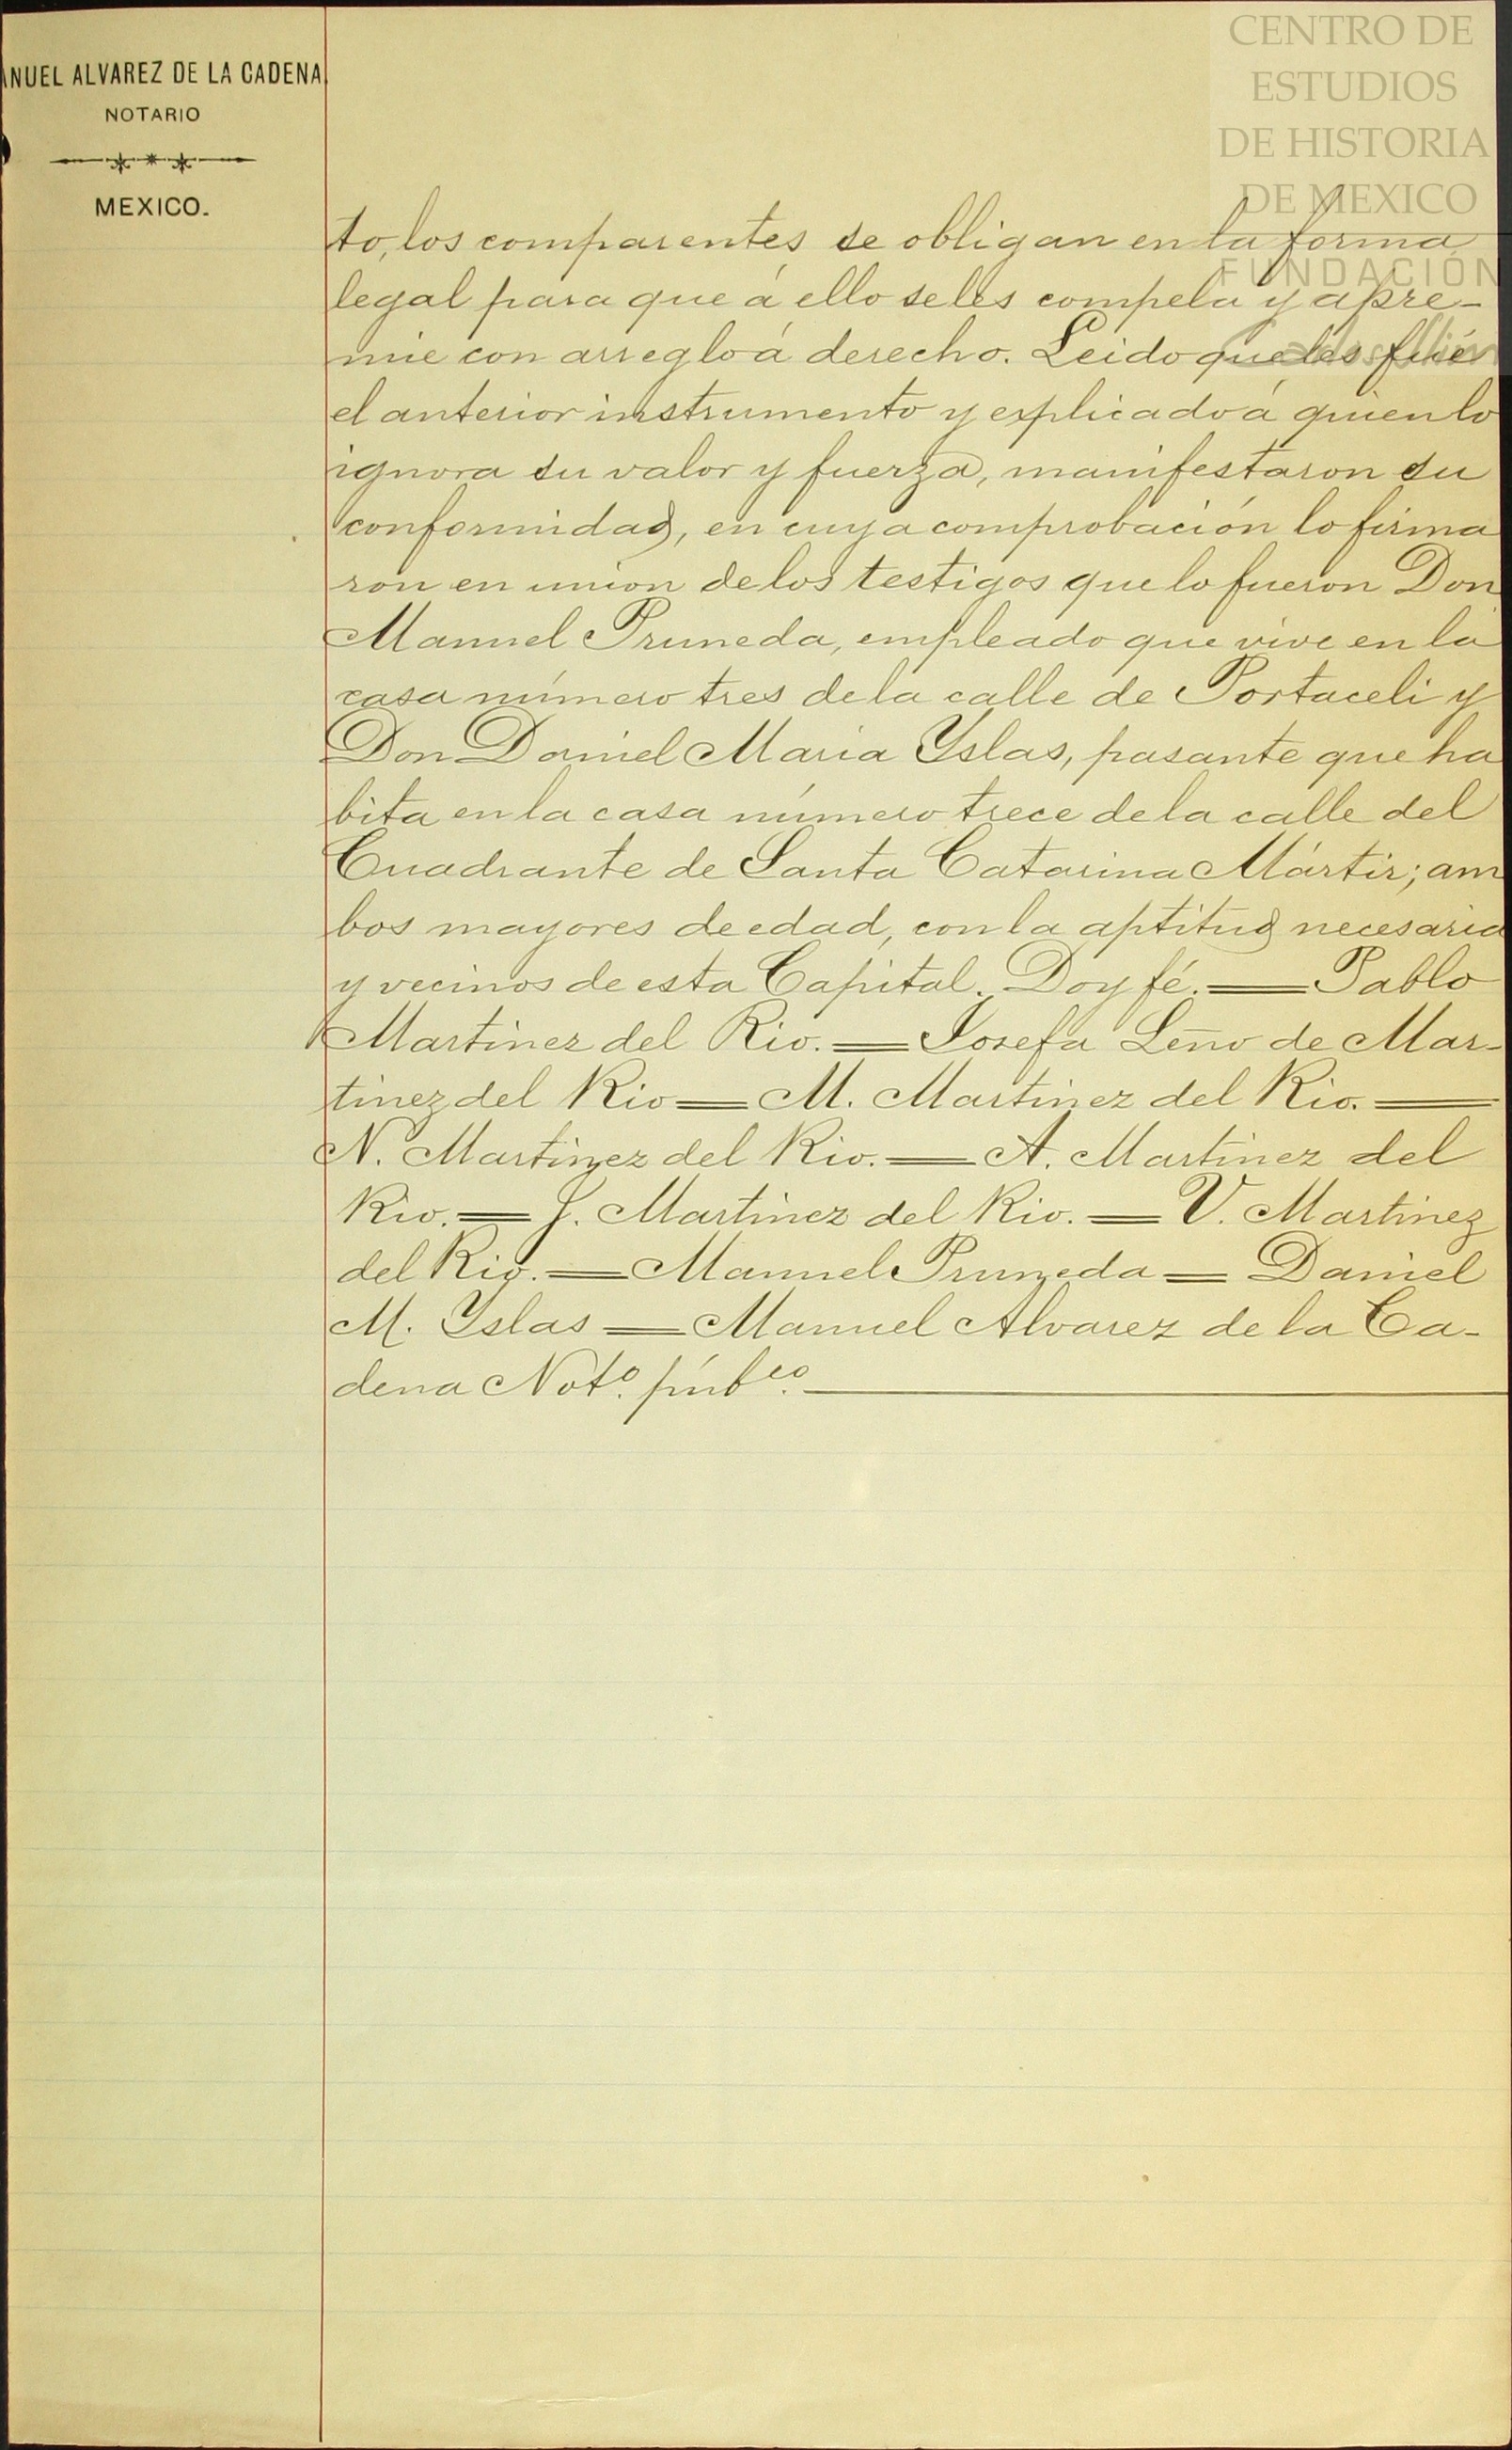 ANUEL ALVAREZ DE LA CADENA.
NOTARIO
MEXICO.
CENTRO DE
ESTUDIOS
DE HISTORIA
DE MEXICO
FUNDACIÓN
to, los comparentes se obligan en la forma
legal para que á ello se les compela y apre-
mie con arreglo á derecho. Leido que les fué
el anterior instrumento y explicado á quien lo
ignora su valor y fuerza, manifestaron su
conformidad, en cuya comprobación lo firma
ron en union de los testigos que lo fueron Don
Manuel Pruneda, empleado que vive en la
casa número tres de la calle de Portaceli y
Don Daniel Maria Yslas, pasante que ha
bita en la casa número trece de la calle del
Cuadrante de Santa Catarina Mártir; am
bos mayores de edad, con la aptitud necesaria
y vecinos de esta Capital. Doy fé. = Pablo
Martinez del Rio. = Josefa Leño de Mar-
tinez del Rio = M. Martinez del Rio. =
N. Martinez del Rio. = A. Martinez del
Rio. = J. Martinez del Rio. = V. Martinez
del Rio. = Manuel Pruneda = Daniel
M. Yslas = Manuel Alvarez de la Ca-
dena Notº. púbco.